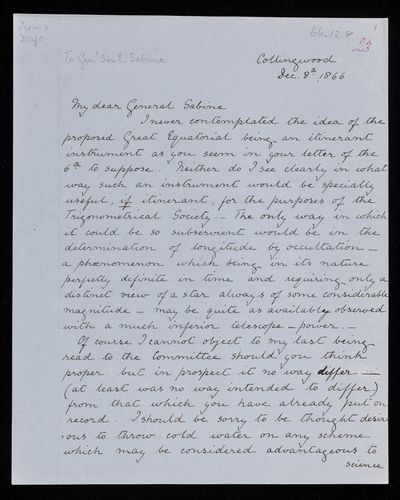 From a
Draft
66.12.8
1
To Genl Sir E. Sabine
Collingwood
Dec. 8th 1866
My dear General Sabine
I never contemplated the idea of the
proposed Great Equatorial being an itinerant
instrument as you seem in your letter of the
6th to suppose. Neither do I see clearly in what
way such an instrument would be specially
useful, if itinerant, for the purposes of the
Trigonometrical Society. — The only way in which
it could be so subservient would be in the
determination of longitude by occultation —
a phœnomenon which being in its nature
perfectly definite in time and requiring only a
distinct view of a star always of some considerable
magnitude — may be quite as available observed
with a much inferior telescope – power. —
Of course I cannot object to my last being
read to the Committee should you think
proper but in prospect it no way differ —
(at least was no way intended to differ)
from that which you have already put on
record. I should be sorry to be thought desir
ous to throw cold water on any scheme
which may be considered advantageous to
science